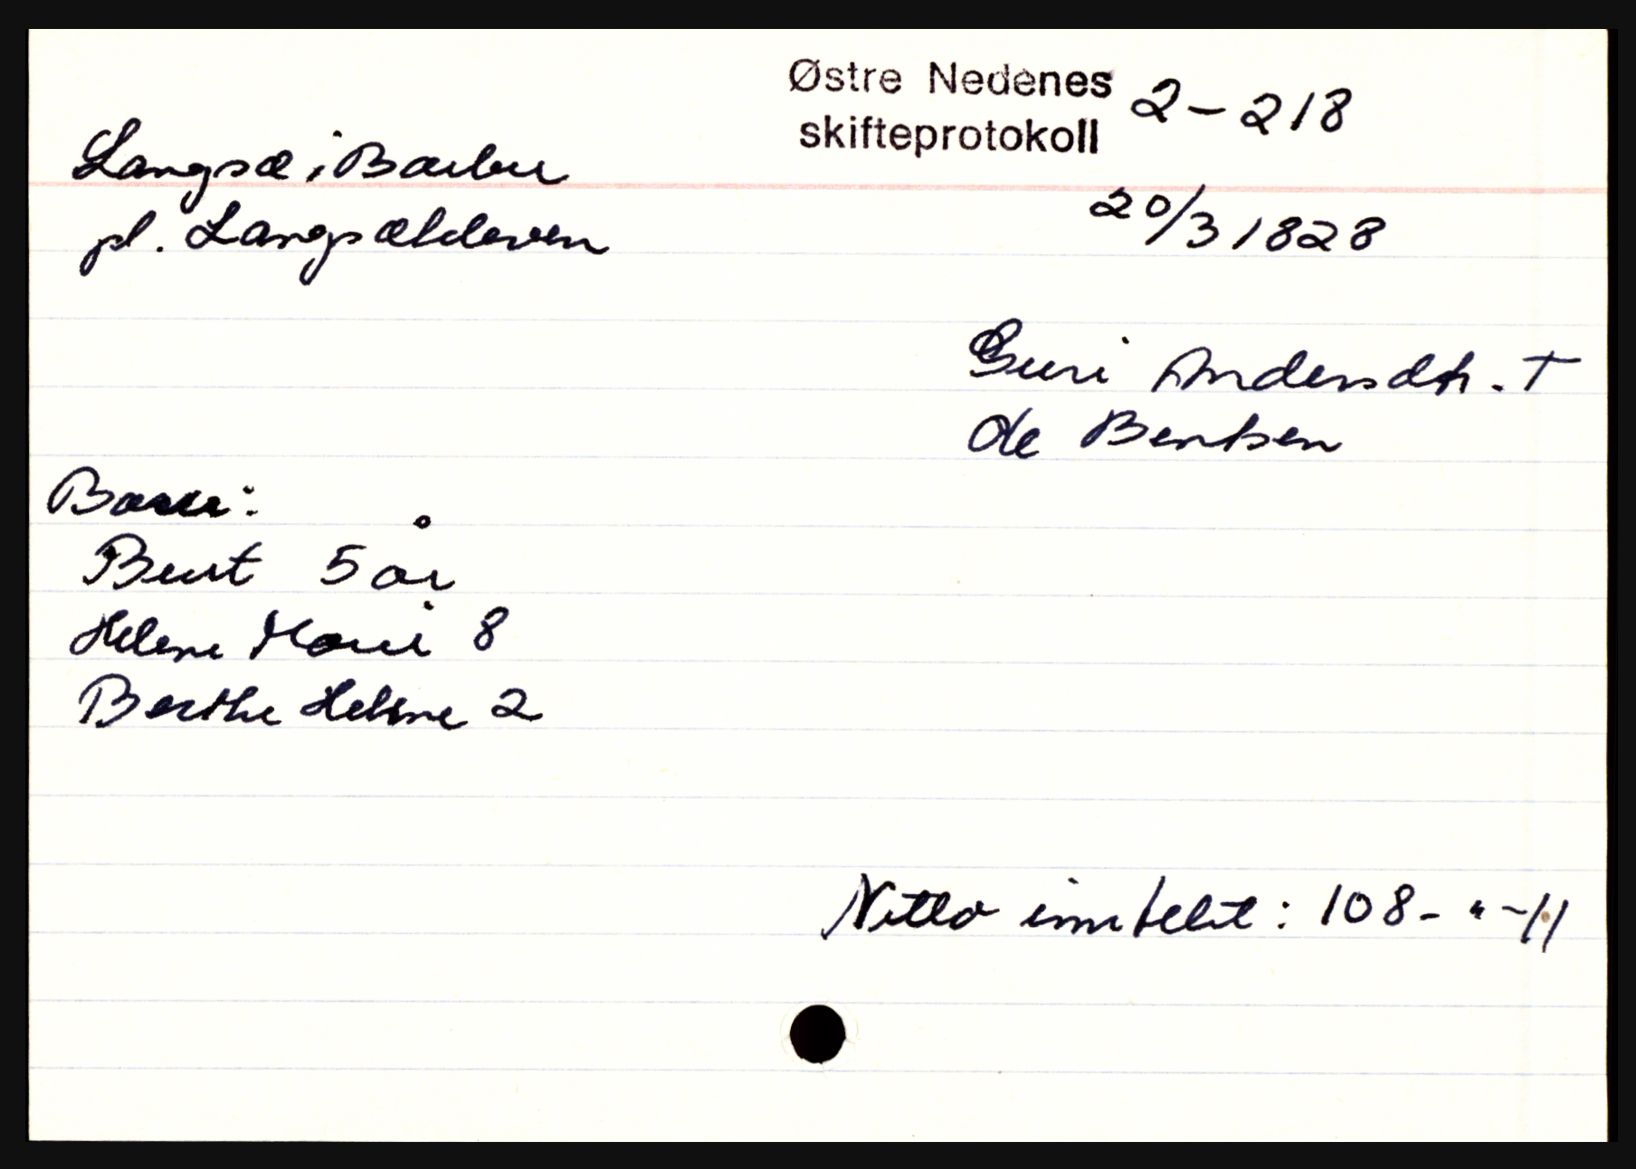 Østre Nedenes
skifteprotokoll 2-218
Langsæ i Barbu
pl. Langsækleven
20/3 1828
Guri Andersdtr. †
Ole Bentsen
Barn:
Bent 5 år
Helene Marie 8
Berthe Helene 2
Netto innteht: 108-"-11